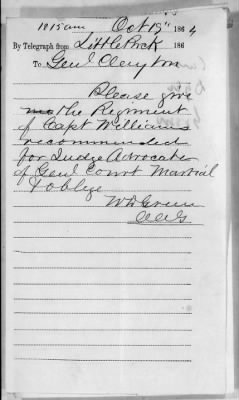 1015am Oct 15" 1864
By Telegraph from Little Rock 186
To Genl Clayton
Please give
me the Regiment
of Capt Williams
recommended
for Judge Advocate
of Genl Court Martial
& oblige
W D Green
AAG